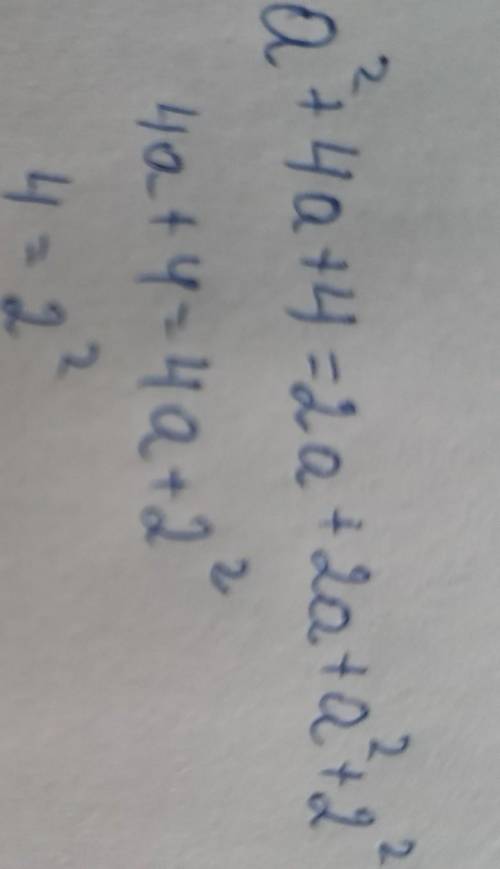 a² + 4a + 4 = 2a + 2a + a² + 2²
4a + 4 = 4a + 2²
4 = 2²